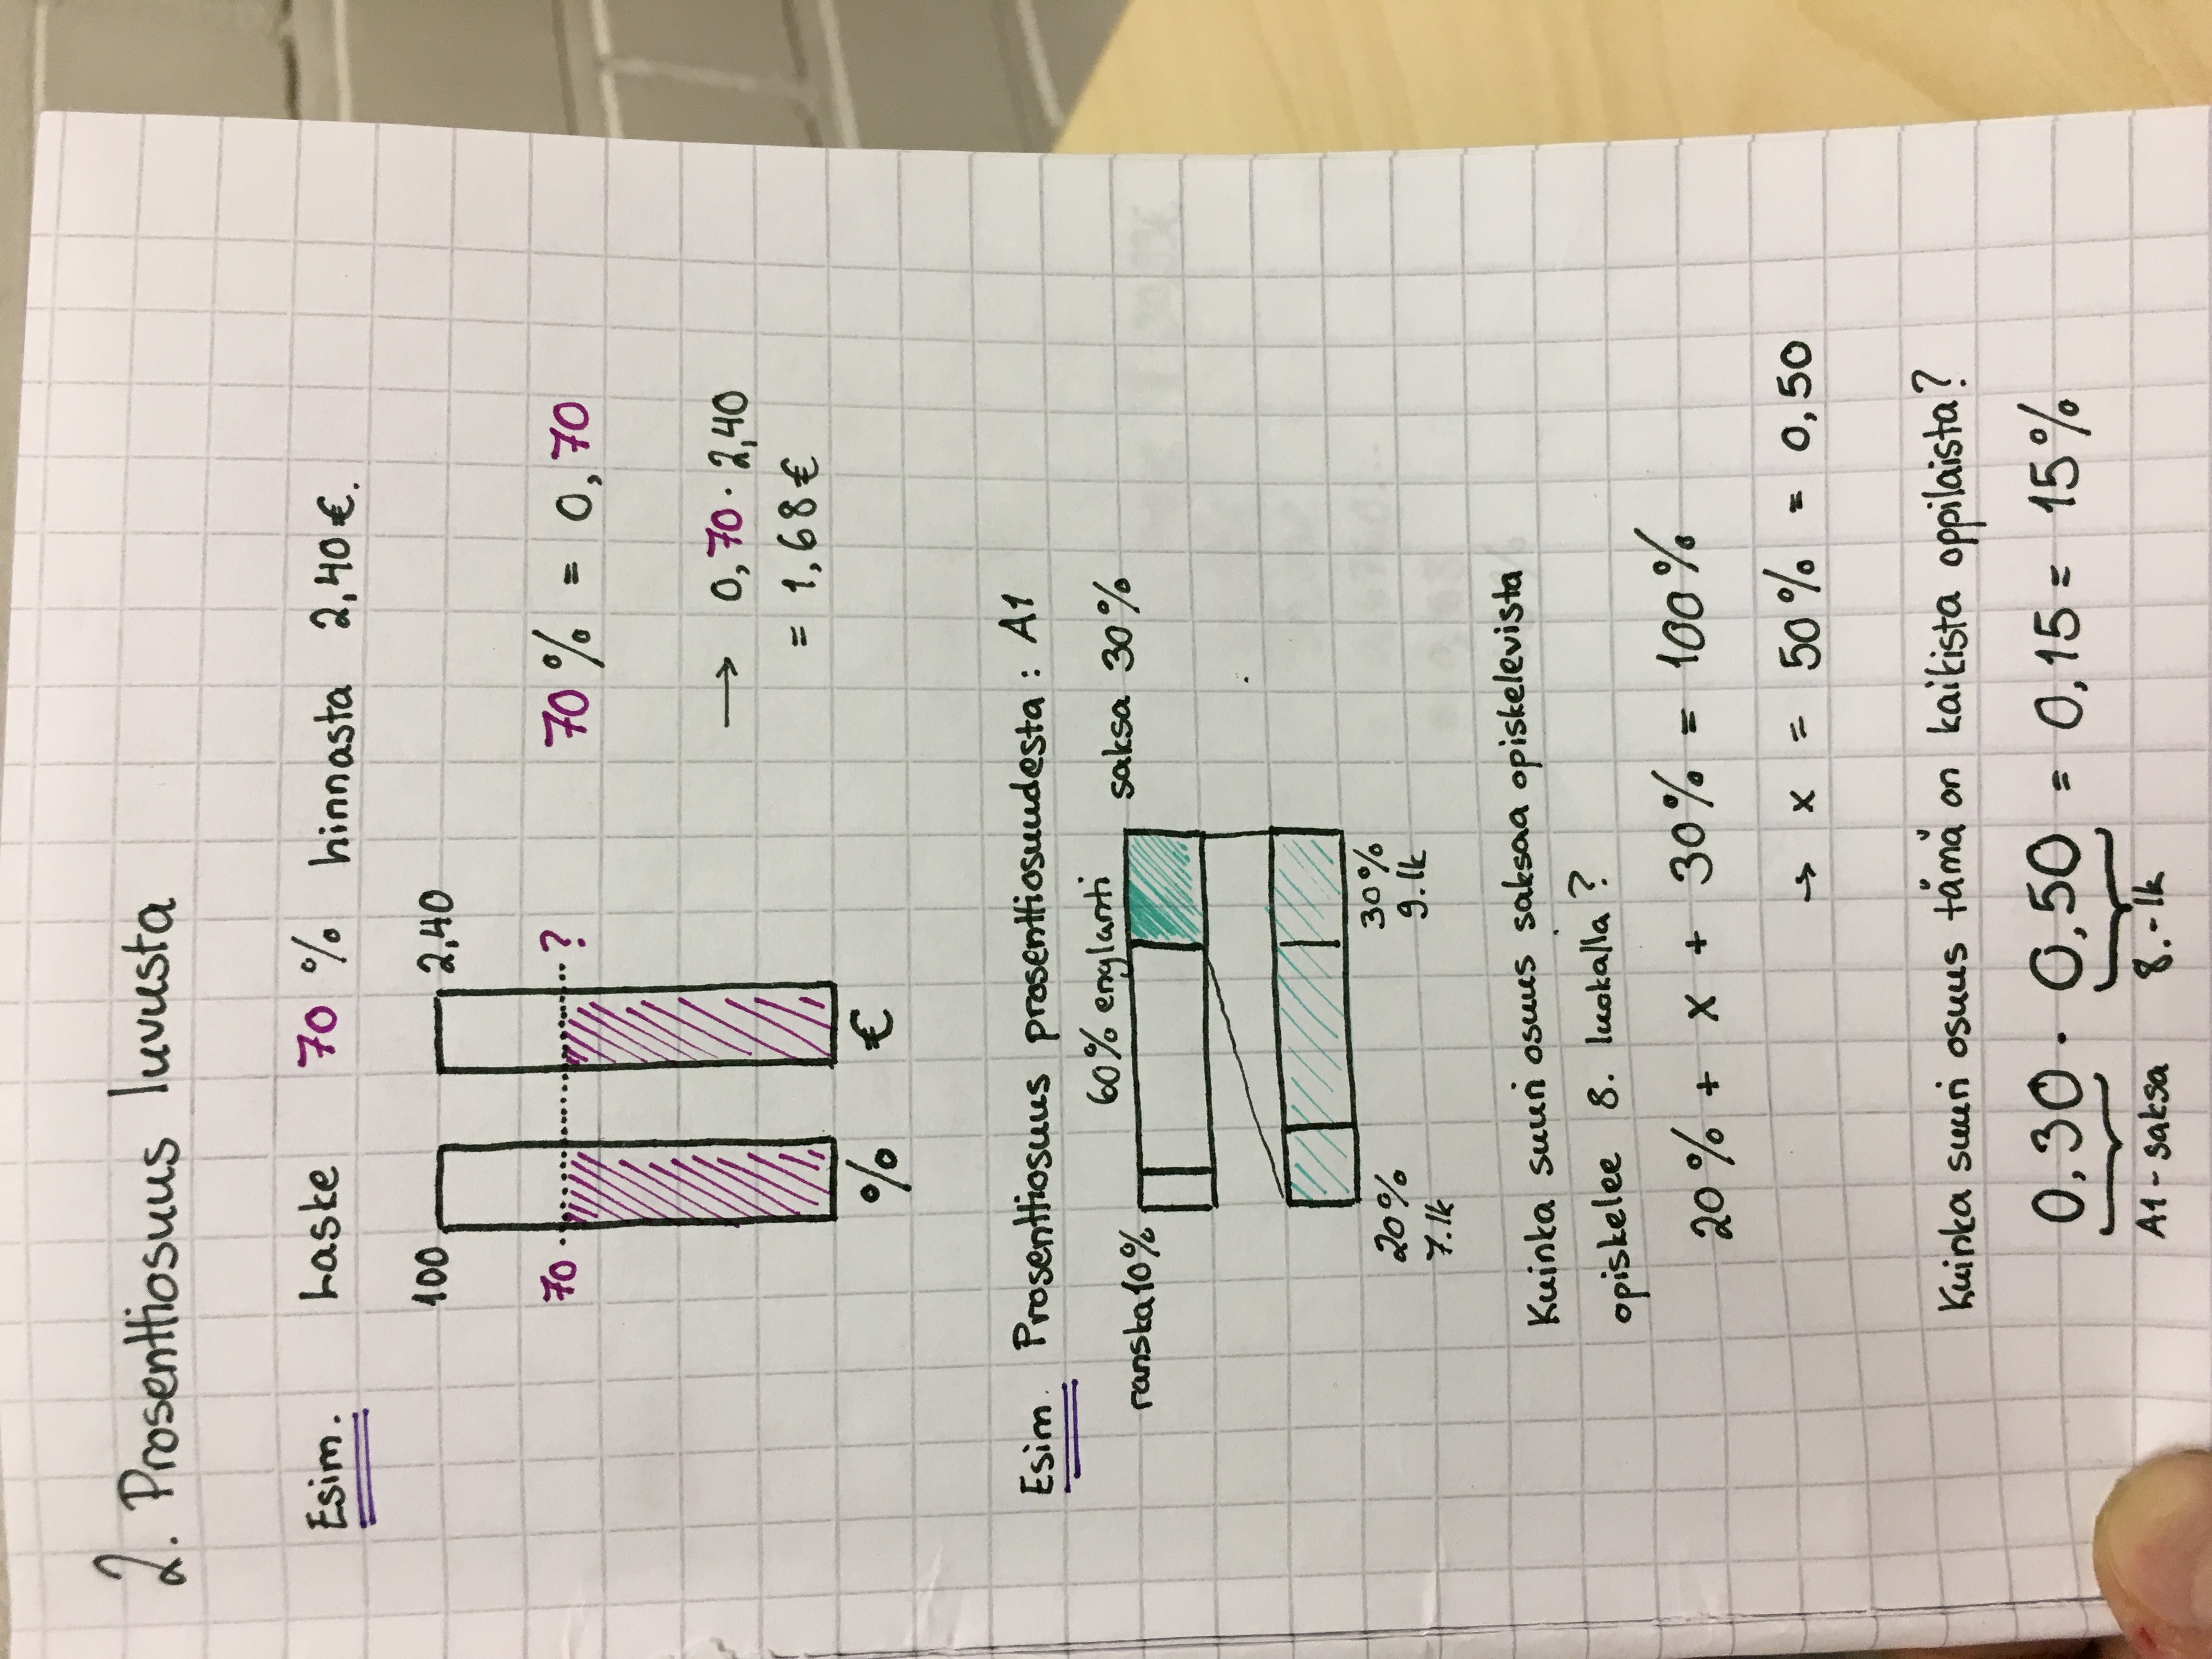 2. Prosenttiosuus luvusta
Esim. Laske 70 % hinnasta 2,40 €.
100 2,40
70 ?
% €
70 % = 0,70
→ 0,70 · 2,40
= 1,68 €
Esim. Prosenttiosuus prosenttiosuudesta: A1
ranska 10% 60% englanti saksa 30%
20% 30%
7.lk 9.lk
Kuinka suuri osuus saksaa opiskelevista
opiskelee 8. luokalla?
20% + x + 30% = 100%
→ x = 50% = 0,50
Kuinka suuri osuus tämä on kaikista oppilaista?
0,30 · 0,50 = 0,15 = 15%
A1-saksa 8.-lk